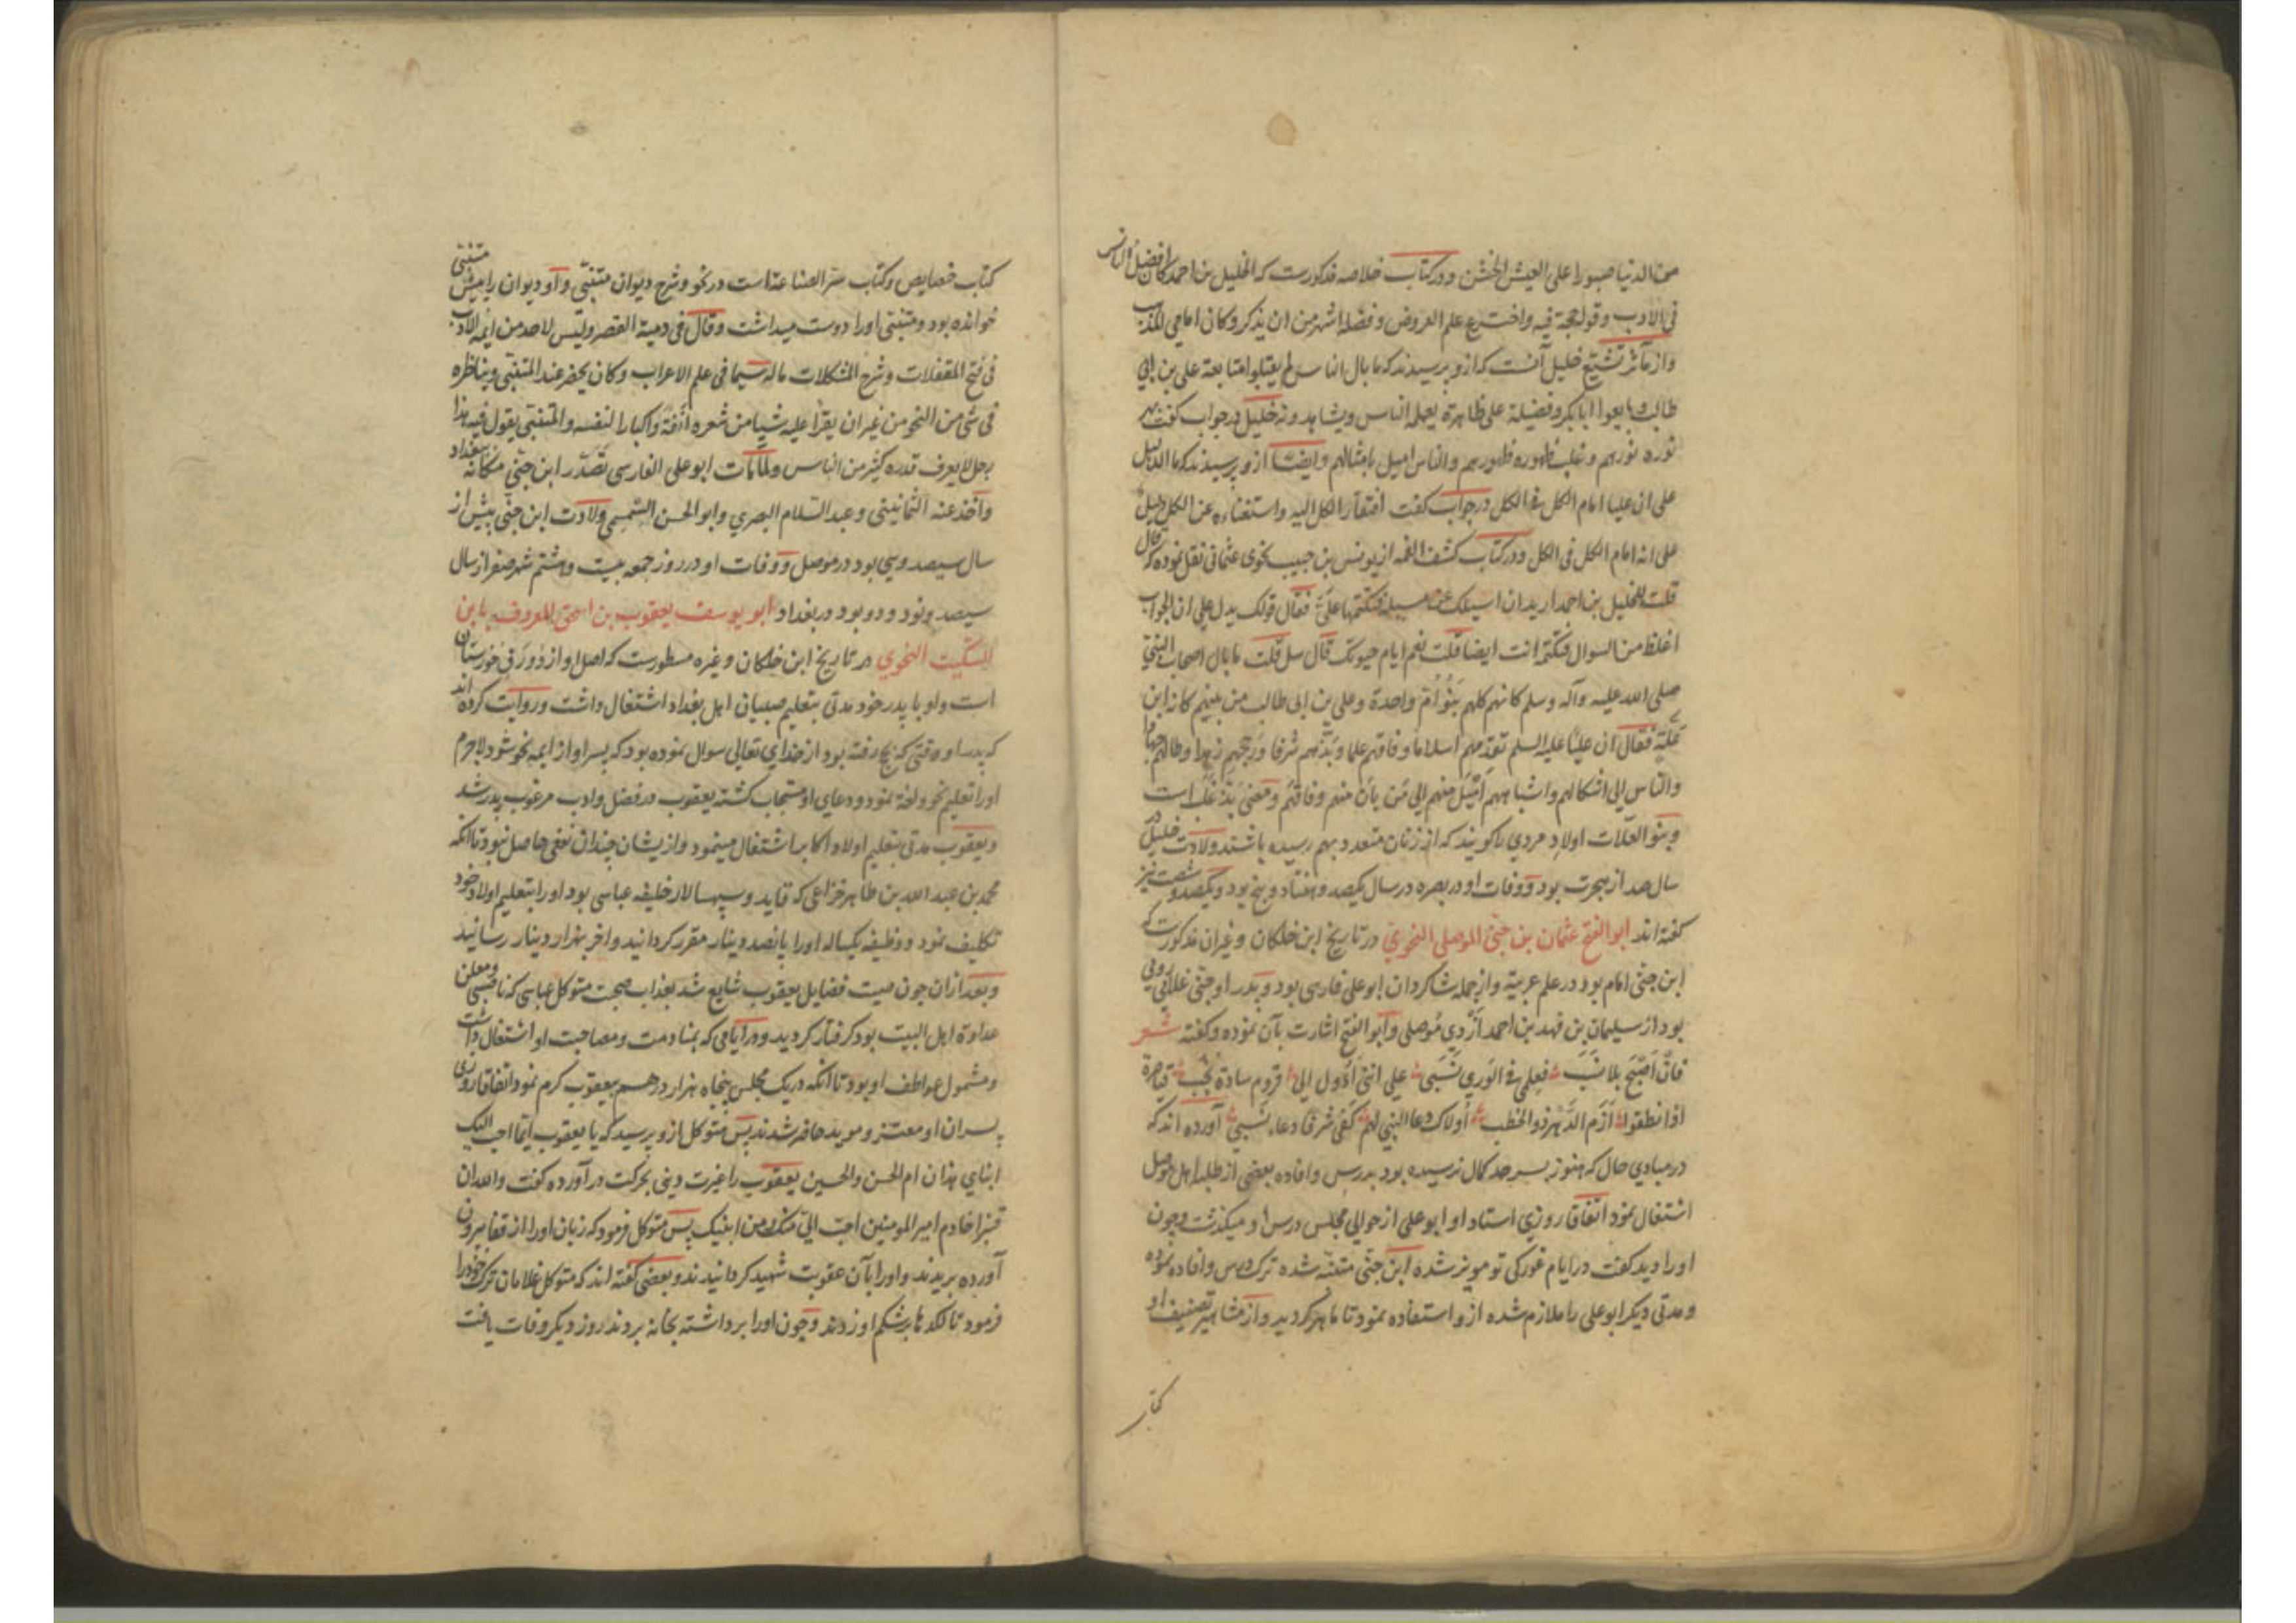 من الدنيا صبورا على العيش الخشن ودر کتاب خلاصه مذکورست که الخليل بن احمد کان افضل الناس
فی الادب وقوله حجة فيه واخترع علم العروض وفضله اشهر من ان يذکر وکان امامی المذهب
واز مآثر تشیع خلیل آنست که ازو پرسیدند که ما بال الناس لم يقبلوا متابعة علی بن ابی
طالب وبايعوا ابابکر وفضيلة علی ظاهرة يعمله الناس ويشاهدونه خلیل در جواب گفت بهر
نوره نورهم وغلب ظهوره ظهورهم والناس اميل بامثالهم وايضا ازو پرسیدند که ما الدليل
علی ان عليا امام الکل فی الکل در جواب گفت افتقار الکل اليه واستغناءه عن الکل دليل
علی انه امام الکل فی الکل ودر کتاب کشف الغمه از یونس بن حبیب نحوی عثمانی نقل نموده که قال
قلت للخليل بن احمد اريد ان اسيلک عن مسيلة فتکتمها علیّ فقال قولک يدل علی ان الجواب
اغلظ من السوال فتکتم انت ايضا قلت نعم ايام حيوتک قال سل قلت ما بال اصحاب النبی
صلی الله عليه وآله وسلم کانهم کلهم بنو اُمّ واحدة وعلی بن ابی طالب من بينهم کانه ابن
علّة فقال ان عليا عليه السلم تقدمهم اسلاما وفاقهم علما وبذّهم شرفا ورجحهم زهدا وطالهم جهادا
والناس الی اشکالهم واشباههم اَمْيَل منهم الی من بان منهم وفاقهم ومعنی بذّ غلب است
وبنو العلّات اولاد مردی را گویند که از زنان متعدد بهم رسیده باشند ولادت خلیل در
سال صد از هجرت بود ووفات او در بصره در سال یکصد وهفتاد وپنج بود ویکصد وشصت نیز
گفته اند ابو الفتح عثمان بن جنّی الموصلی النحوی در تاریخ ابن خلکان وغیر آن مذکورست که
ابن جنّی امام بود در علم عربیة واز جمله شاگردان ابو علی فارسی بود وپدر او جنّی غلامی رومی
بود از سلیمان بن فهد بن احمد اَزْدی موصلی وابو الفتح اشارت بآن نموده وگفته شعر
فان اُصْبِح بلا نَسَب فعلمی فی الوری نَسَبی علی انّی اَؤول الی قروم سادة نُجُب قياصرة
اذا نطقوا اَرَمّ الدهر ذو الخطب اُولاک دعا النبی لهم کفی شرفا دعاء نبی آورده اند که
در مبادی حال که هنوز بسرحد کمال نرسیده بود بدرس وافاده بعضی از طلبه اهل موصل
اشتغال نمود اتفاقا روزی استاد او ابو علی از حوالی مجلس درس او میگذشت وچون
او را دید گفت در ایام غورکی تو مویز شده ابن جنّی متنبه شده ترک درس وافاده نموده
ومدتی دیگر ابو علی را ملازم شده ازو استفاده نمود تا ماهر گردید واز مشاهیر تصنیف او
کتاب
کتاب خصایص وکتاب سرّ الصناعة است در نحو وشرح دیوان متنبّی واو دیوان را پیش متنبّی
خوانده بود ومتنبّی او را دوست میداشت وقال فی دمية القصر وليس لاحد من ائمة الادب
فی فتح المقفلات وشرح المشکلات ماله سیما فی علم الاعراب وکان يحضر عند المتنبّی ويناظره
فی شیء من النحو من غير ان يقرأ عليه شيا من شعره اَنَفَة واکبارا لنفسه والمتنبّی يقول فيه هذا
رجل لا يعرف قدره کثير من الناس ولمّا مات ابو علی الفارسی تَصَدّر ابن جنّی مکانه ببغداد
واخذ عنه الثمانينی وعبد السلام البصری وابو الحسن السّمسمی ولادت ابن جنّی پیش از
سال سیصد وسی بود در موصل ووفات او در روز جمعه بیست وهشتم شهر صفر از سال
سیصد ونود ودو بود در بغداد ابو یوسف یعقوب بن اسحق المعروف بابن
السکّیت النحوی در تاریخ ابن خلکان وغیره مسطورست که اصل او از دورق خوزستان
است واو با پدر خود مدتی بتعلیم صبیان اهل بغداد اشتغال داشت وروایت کرده اند
که پدر او وقتی که بحج رفته بود از خدای تعالی سوال نموده بود که پسر او از ایمه نحو شود لاجرم
او را تعلیم نحو ولغة نمود ودعای او مستجاب گشته یعقوب در فضل وادب مرغوب پدر شد
ویعقوب مدتی بتعلیم اولاد اکابر اشتغال مینمود وازیشان چندان نفعی حاصل نبود تا آنکه
محمد بن عبد الله بن طاهر خزاعی که قاید وسپهسالار خلیفه عباسی بود او را بتعلیم اولاد خود
تکلیف نمود ووظیفه یکساله او را پانصد دینار مقرر گردانید وآخر بهزار دینار رسانید
وبعد از آن چون صیت فضایل یعقوب شایع شد بعذاب صحبت متوکل عباسی که ناصبی ومعلن
عداوة اهل البیت بود گرفتار گردید ودر ایامی که بمنادمت ومصاحبت او اشتغال داشت
ومشمول عواطف او بود تا آنکه در یک مجلس پنجاه هزار درهم بیعقوب کرم نمود اتفاقا روزی
پسران او معتز وموید حاضر شدند پس متوکل ازو پرسید که يا يعقوب ايما احب اليک
ابنای هذان ام الحسن والحسين یعقوب را غیرت دینی بحرکت در آورده گفت والله ان
قنبرا خادم امير المومنين احبّ الیّ منک ومن ابنيک پس متوکل فرمود که زبان او را از قفا بیرون
آورده بریدند واو را بآن عقوبت شهید گردانیدند وبعضی گفته اند که متوکل غلامان ترک خود را
فرمود تا لگدها بر شکم او زدند وچون او را برداشته بخانه بردند روز دیگر وفات یافت